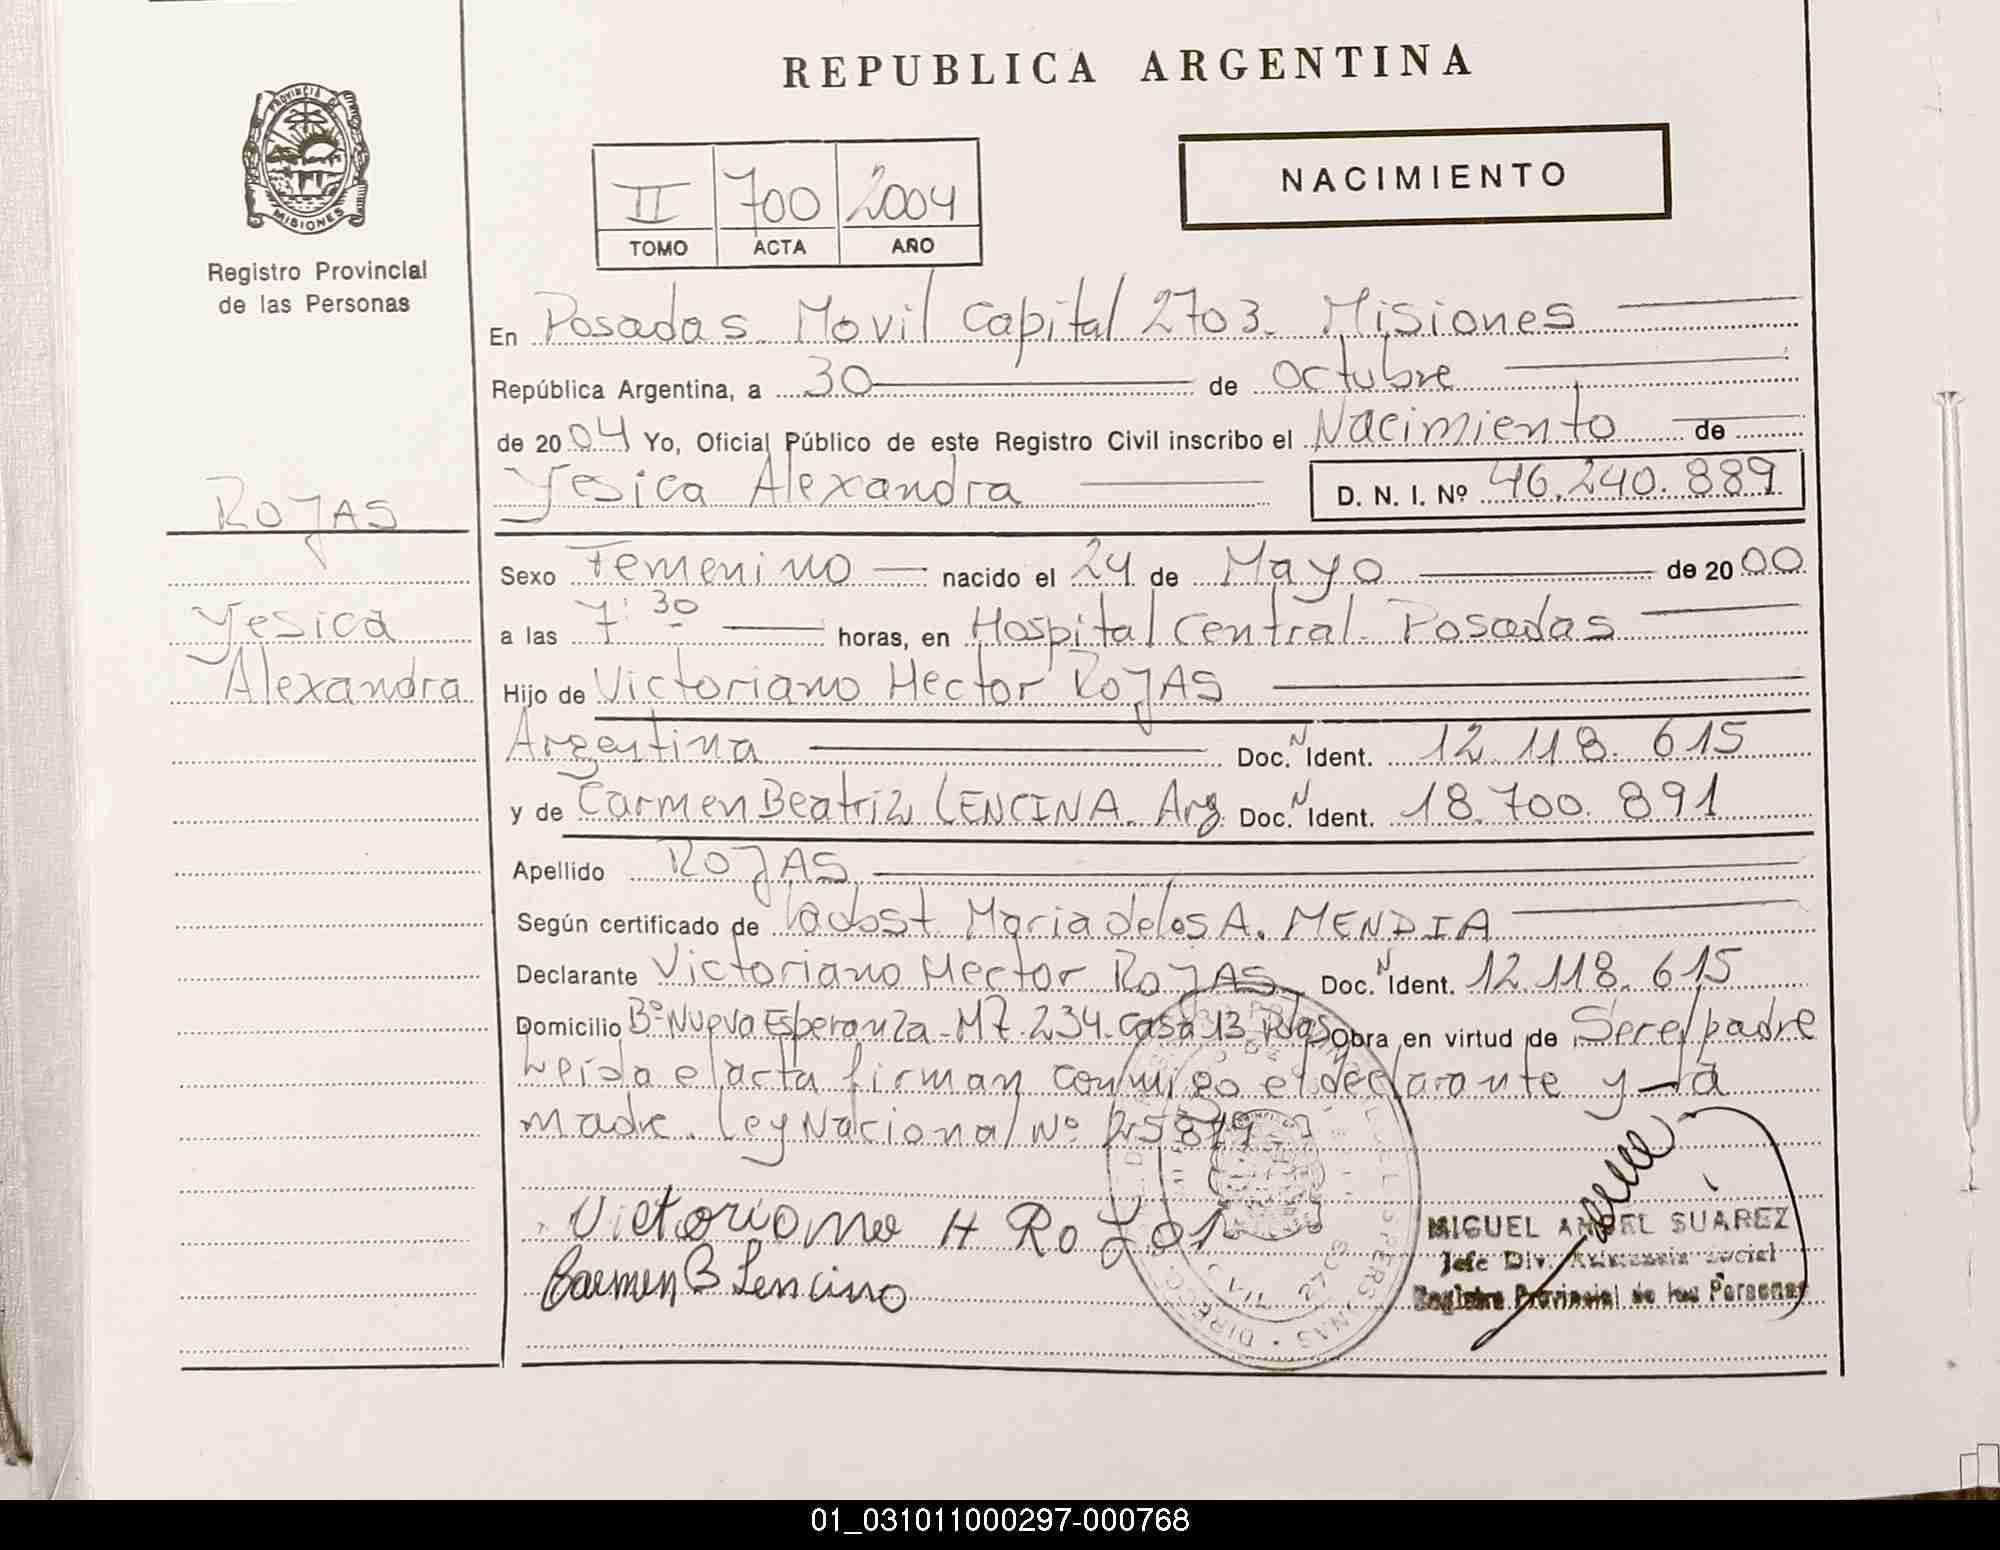 REPUBLICA ARGENTINA
PROVINCIA DE
MISIONES
Registro Provincial
de las Personas
II 700 2004
TOMO ACTA AÑO
NACIMIENTO
En Posadas Movil Capital 2703. Misiones
República Argentina, a 30 de Octubre
de 2004 Yo, Oficial Público de este Registro Civil inscribo el Nacimiento de
Yesica Alexandra D. N. I. Nº 46.240.889
ROJAS
Yesica
Alexandra
Sexo Femenino nacido el 24 de Mayo de 2000
a las 7:30 horas, en Hospital Central. Posadas
Hijo de Victoriano Hector ROJAS
Argentina Doc. N Ident. 12.118.615
y de Carmen Beatriz LENCINA. Arg. Doc. N Ident. 18.700.891
Apellido ROJAS
Según certificado de Maria de los A. MENDIA
Declarante Victoriano Hector ROJAS Doc. N Ident. 12.118.615
Domicilio Bº Nueva Esperanza - MZ. 234. Casa 13 Pdas Obra en virtud de Ser el padre
Leida el acta firman conmigo el declarante y la
madre. Ley Nacional Nº
Victoriano H Rojas
Carmen B Lencina
MIGUEL ANGEL SUAREZ
Jefe Div. Social
Registro Provincial de las Personas
01_031011000297-000768